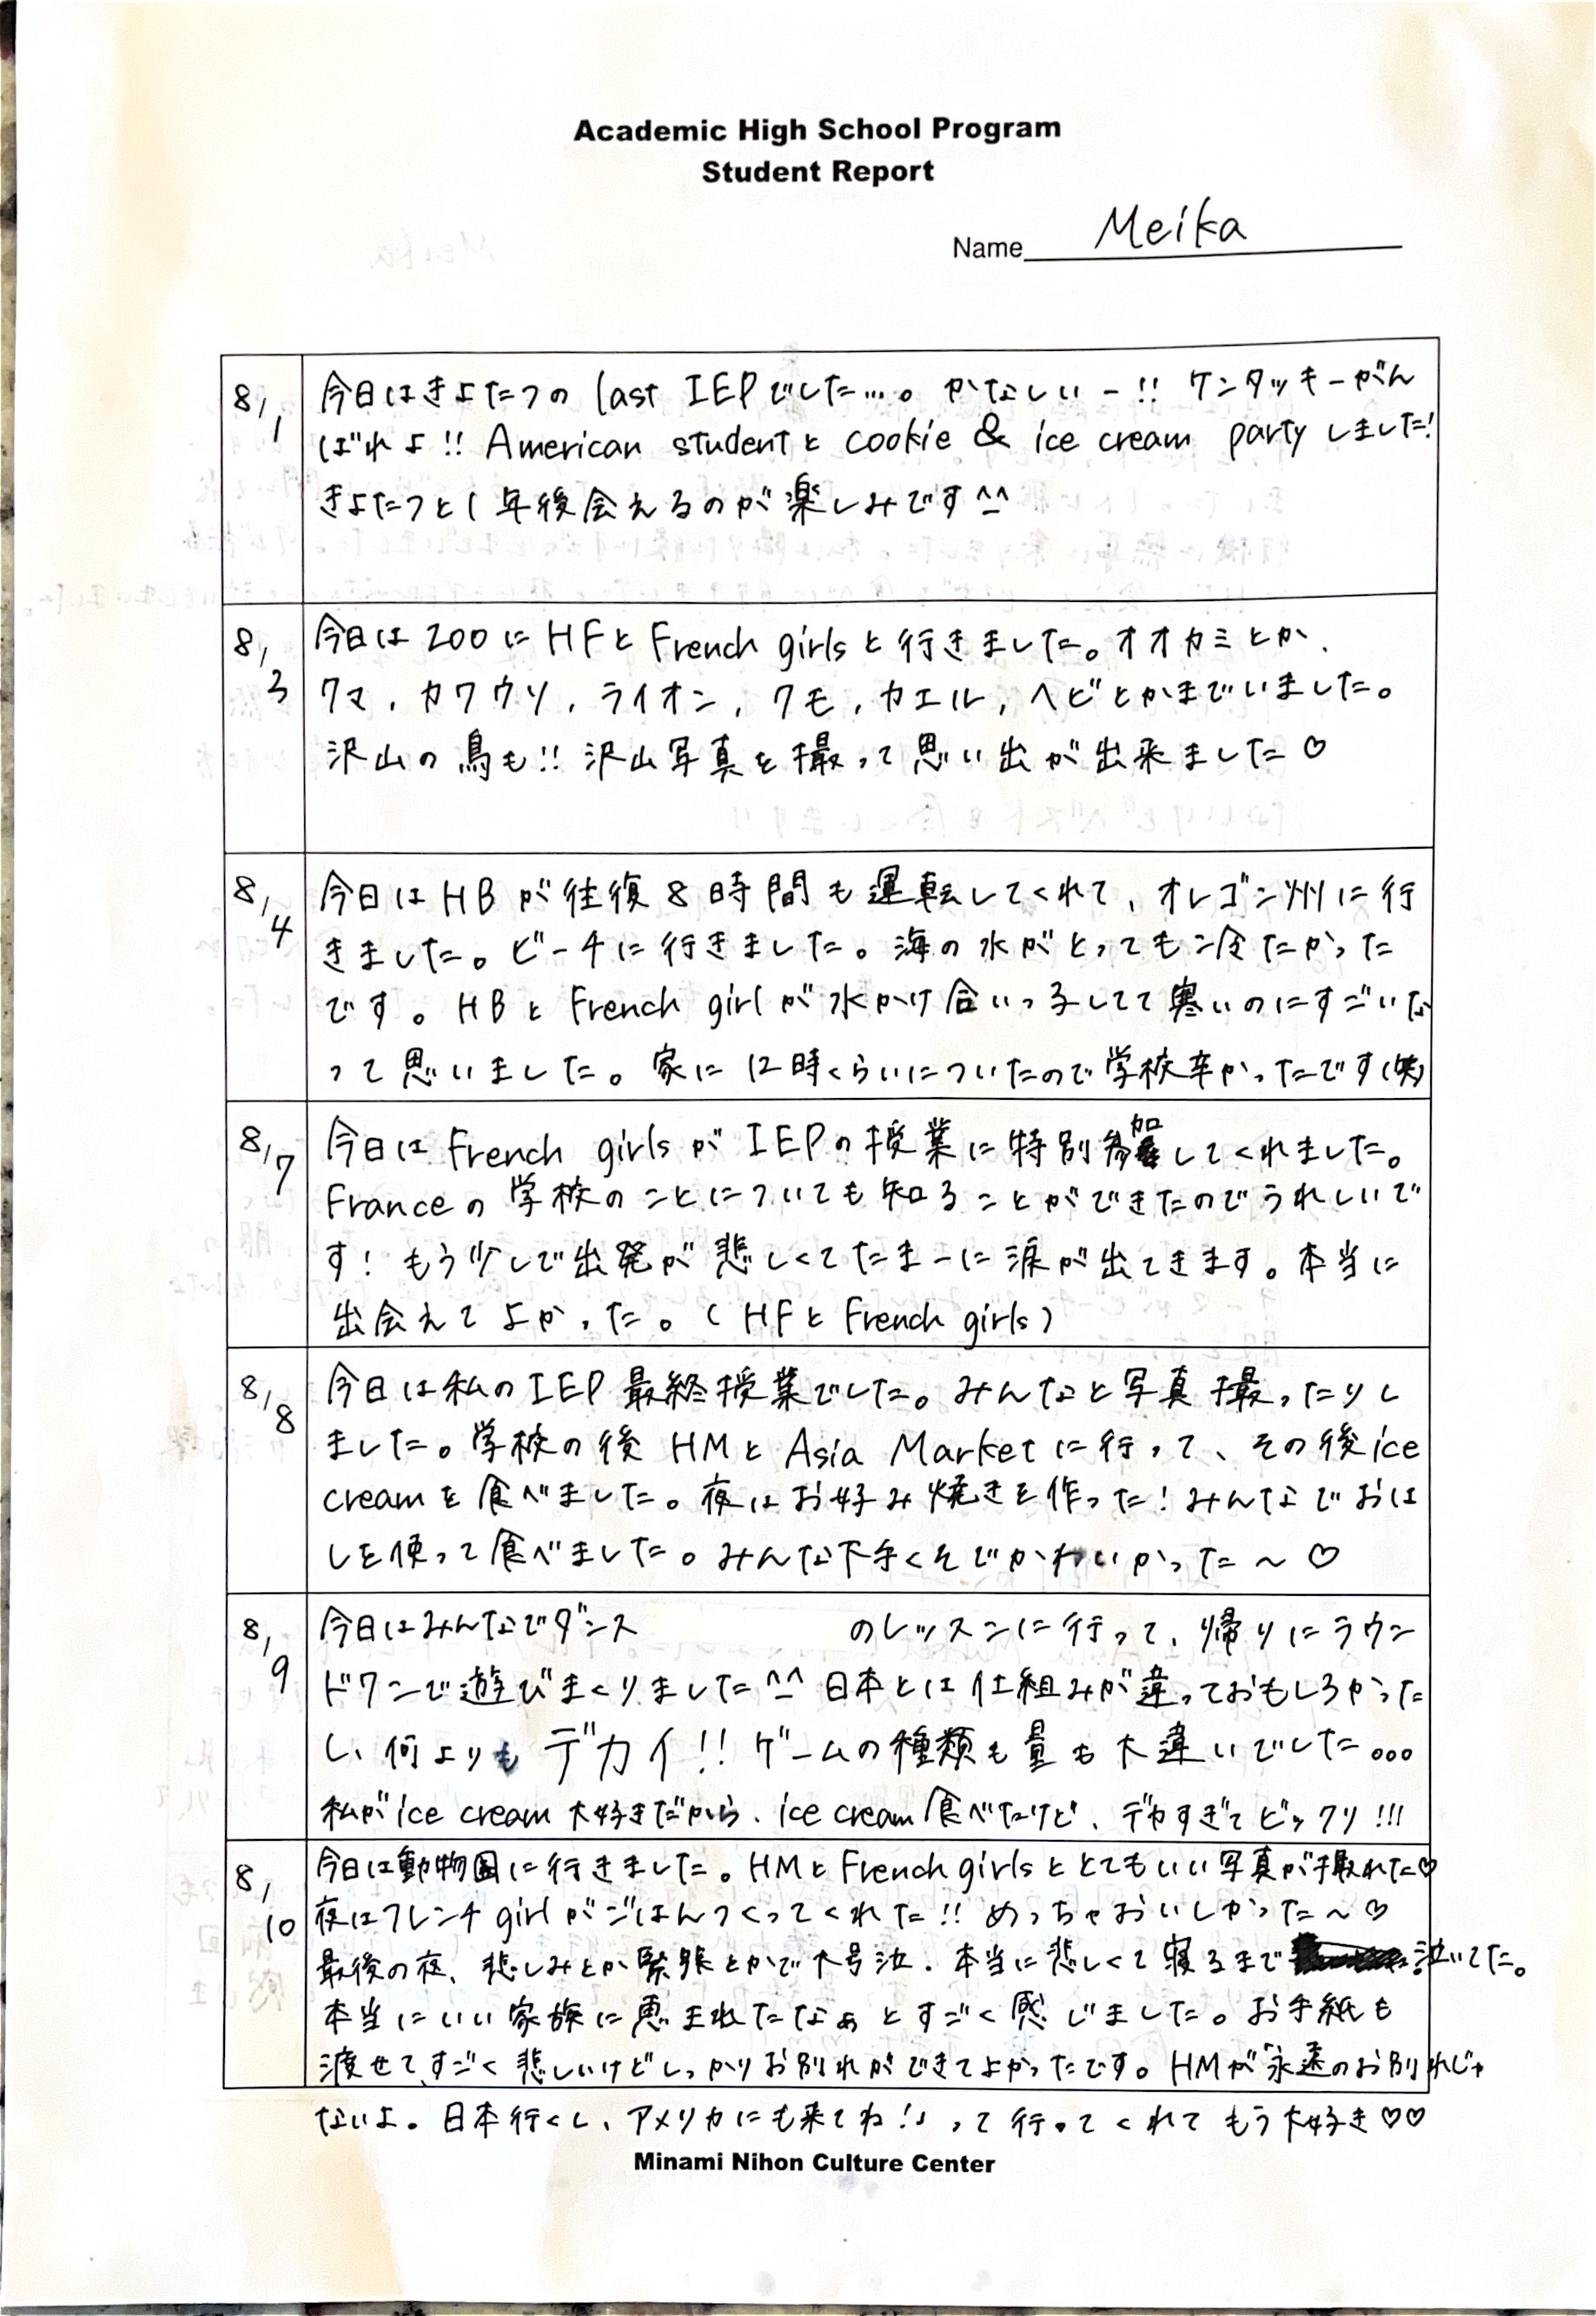 Academic High School Program
Student Report
Name Meika
8/1
今日はきよたつの last IEPでした…。かなしいー!! ケンタッキーがん
ばれよ!! American studentと cookie & ice cream party しました!
きよたつと1年後会えるのが楽しみです^^
8/3
今日は ZOOに HFと French girlsと行きました。オオカミとか、
クマ、カワウソ、ライオン、クモ、カエル、ヘビとかまでいました。
沢山の鳥も!! 沢山写真を撮って思い出が出来ました♡
8/4
今日は HBが往復8時間も運転してくれて、オレゴン州に行
きました。ビーチに行きました。海の水がとっても冷たかった
です。HBと French girlが水かけ合いっ子してて寒いのにすごいな
って思いました。家に12時くらいについたので学校辛かったです(笑)
8/7
今日は French girlsが IEPの授業に特別参加してくれました。
Franceの学校のことについても知ることができたのでうれしいで
す! もう少しで出発が悲しくてたまーに涙が出てきます。本当に
出会えてよかった。(HFと French girls)
8/8
今日は私のIEP最終授業でした。みんなと写真撮ったりし
ました。学校の後 HMと Asia Marketに行って、その後ice
creamを食べました。夜はお好み焼きを作った! みんなでおは
しを使って食べました。みんな下手くそでかわいかった〜♡
8/9
今日はみんなでダンス のレッスンに行って、帰りにラウン
ドワンで遊びまくりました^^ 日本とは仕組みが違っておもしろかった
し、何よりも デカイ!! ゲームの種類も量も大違いでした...
私がice cream 大好きだから、ice cream食べたけど、デカすぎてビックリ!!!
8/10
今日は動物園に行きました。HMと French girlsととてもいい写真が撮れた♡
夜はフレンチ girlがごはんつくってくれた!! めっちゃおいしかった〜♡
最後の夜、悲しみとか緊張とかで大号泣。本当に悲しくて寝るまで泣いてた。
本当にいい家族に恵まれたなぁとすごく感じました。お手紙も
渡せて、すごく悲しいけどしっかりお別れができてよかったです。HMが「永遠のお別れじゃ
ないよ。日本行くし、アメリカにも来てね!」って行ってくれてもう大好き♡♡
Minami Nihon Culture Center